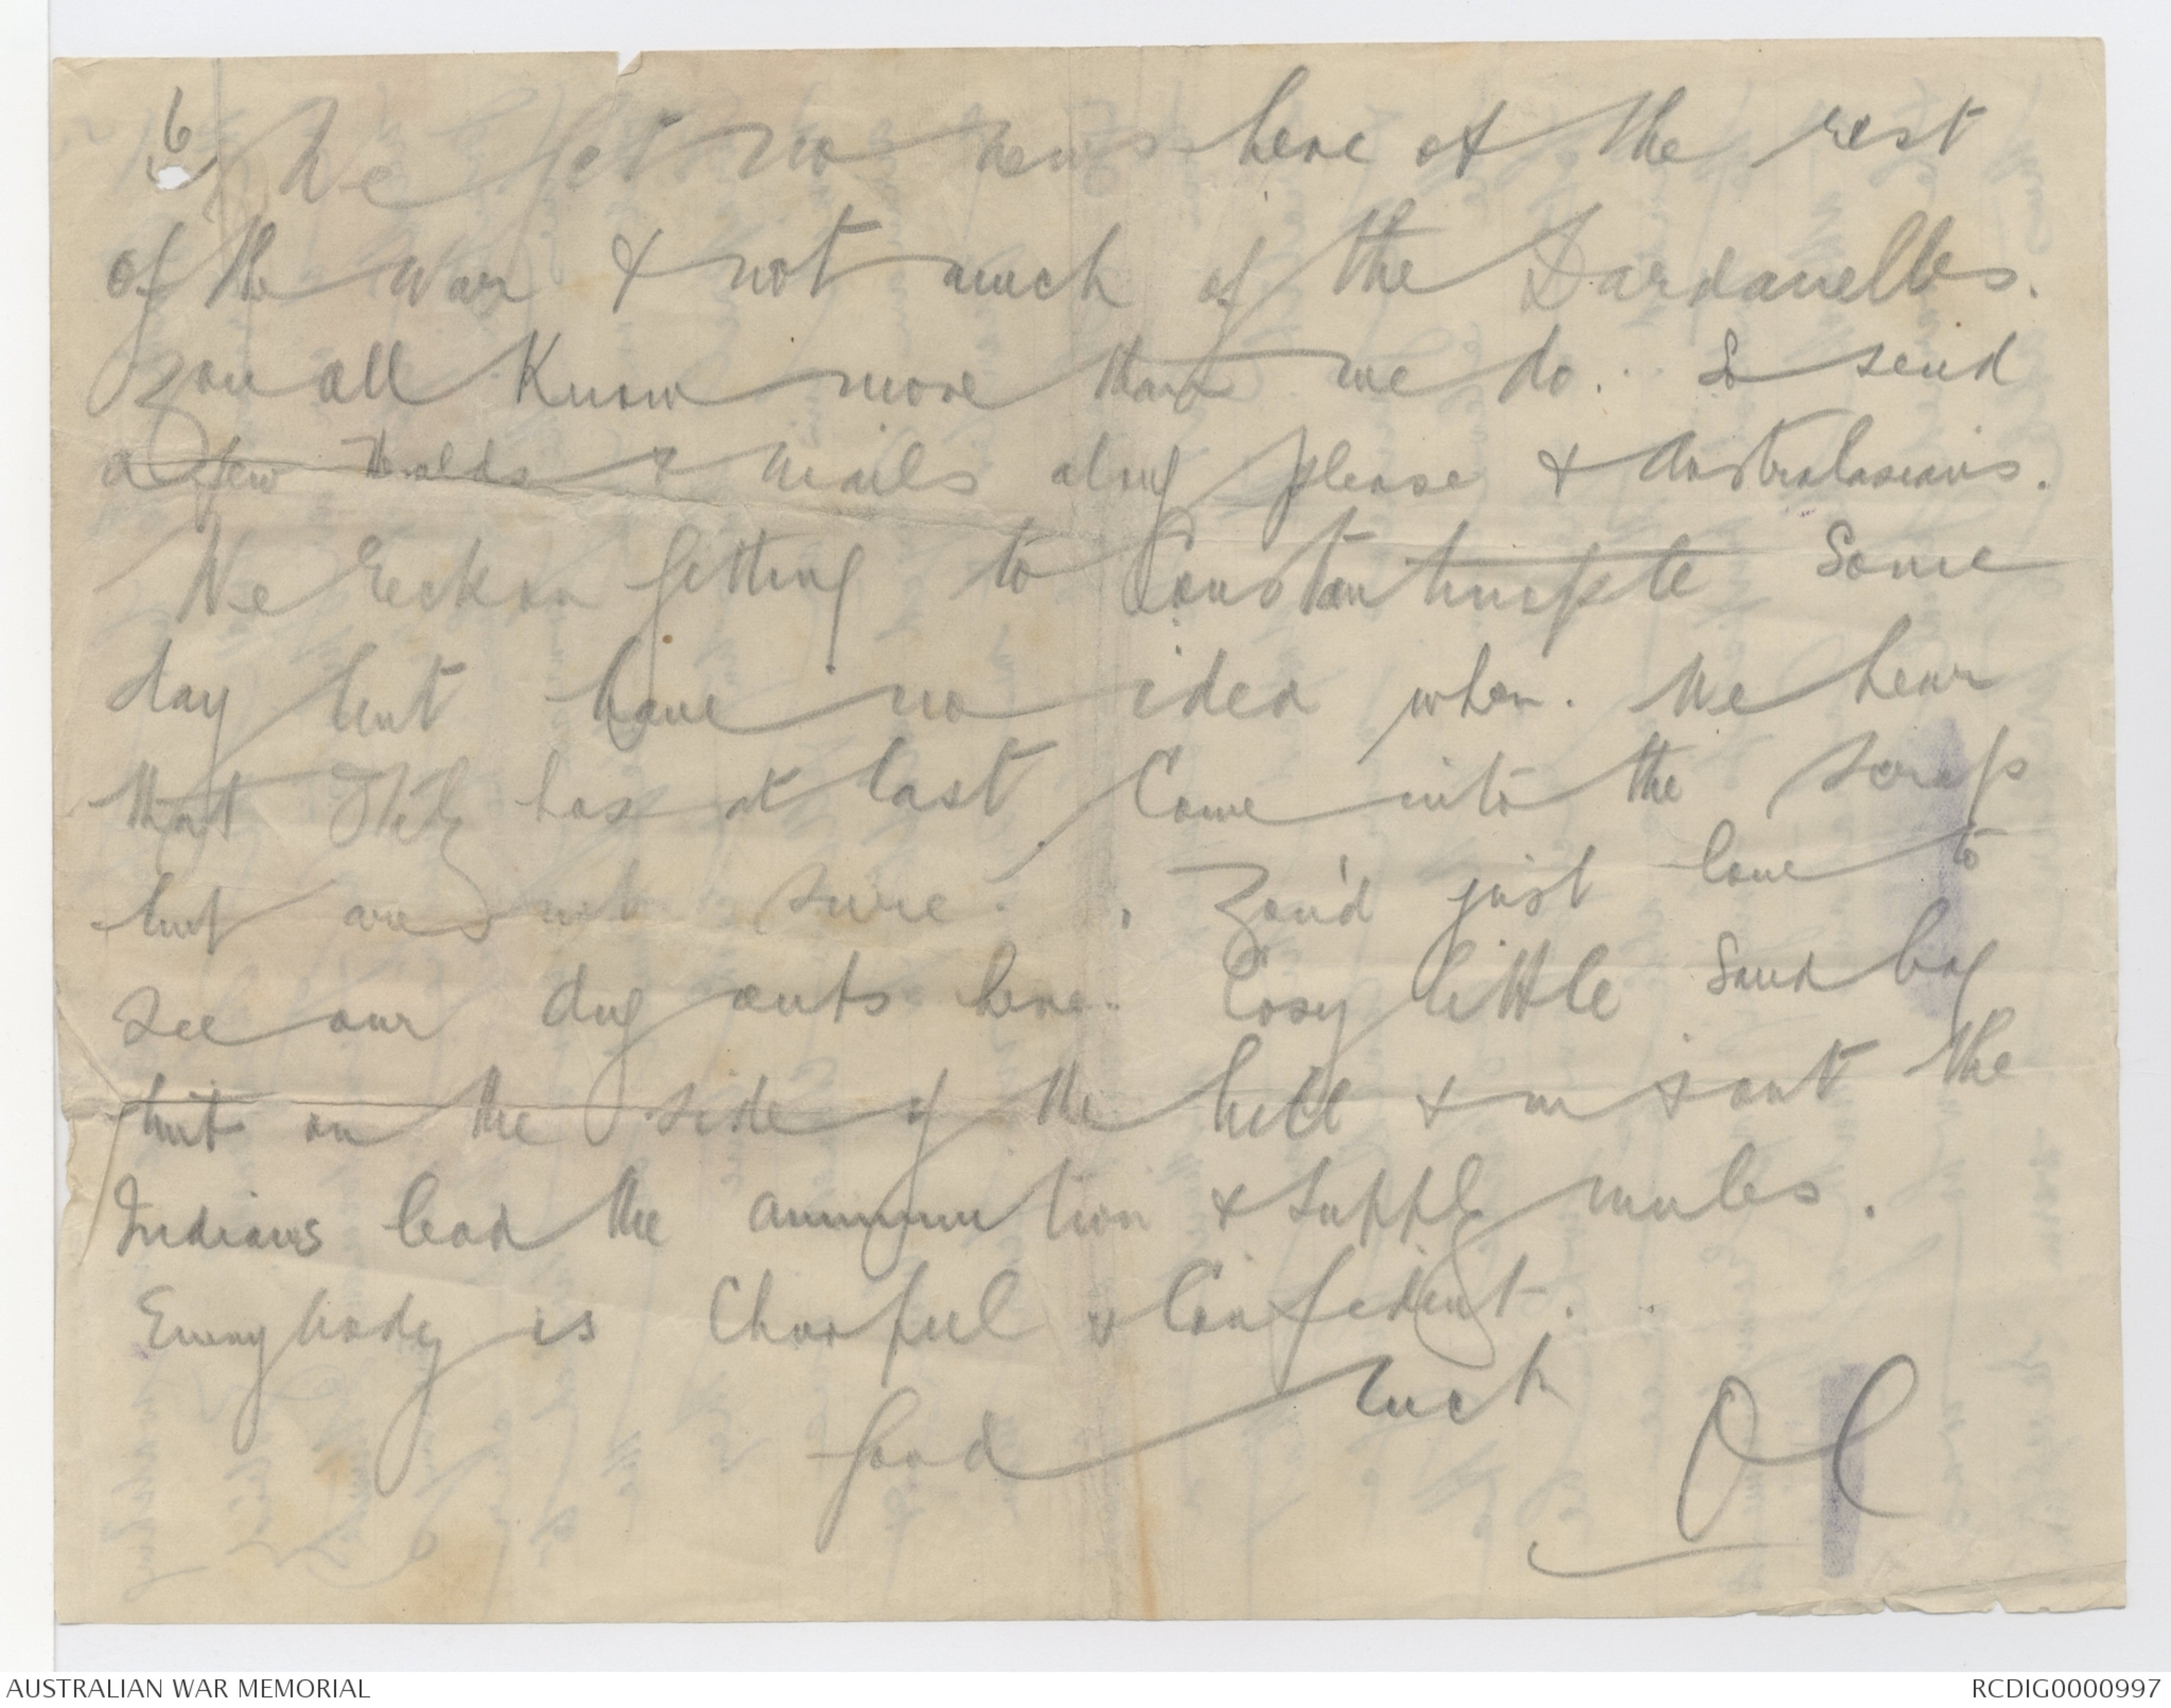 6 We get no news here of the rest
of the war & not much of the Dardanelles.
You all know more than we do. So send
a few Heralds & Mails along please & Australasians.
We reckon getting to Constantinople some
day but have no idea when. We hear
that Italy has at last come into the scrap
but are not sure. You'd just love to
see our dug outs here. Cosy little sand bag
huts on the side of the hill & in & out the
Indians lead the ammunition & supply mules.
Everybody is cheerful & confident.
Good luck
OC
AUSTRALIAN WAR MEMORIAL
RCDIG0000997